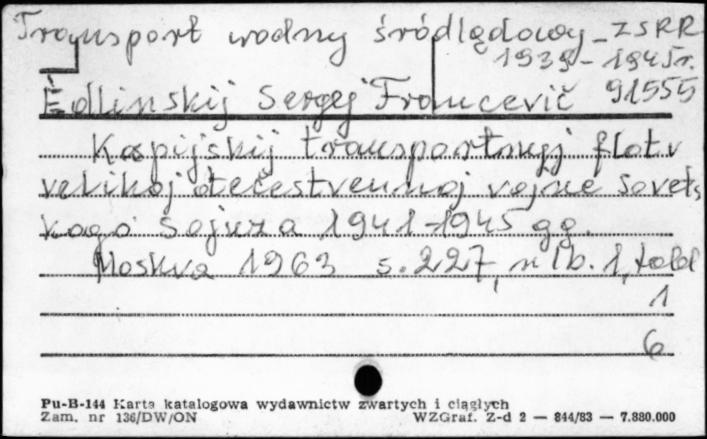 Transport wodny śródlądowy - ZSRR
1939 - 1945 r.
Èdlinskij Sergej Francevič 91555
Kaspijskij transportnyj flot v
velikoj otečestvennoj vojne Sovets
kogo Sojuza 1941-1945 gg.
Moskva 1963 s. 227, nlb. 1, tabl
1
6
Pu-B-144 Karta katalogowa wydawnictw zwartych i ciągłych
Zam. nr 136/DW/ON WZGraf. Z-d 2 — 844/83 — 7.880.000